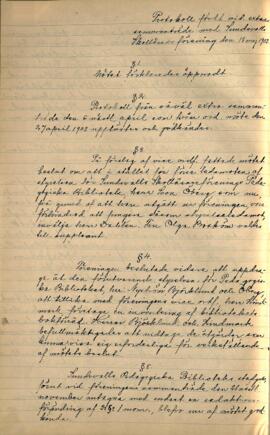 Protokoll fört vid extra
sammanträde med Sundsvalls
Skollärareförening den 18 maj 1903.
§1.
Mötet förklarades öppnadt.
§2.
Protokoll från såväl extra samman-
träde den april som från ord. möte den
27 april 1903 upplästes och godkändes.
§3.
På förslag af vice ordf. fattade mötet
beslut om att i stället för förre ledamoten af
styrelsen för Sundsvalls Skollärareförenings Peda-
gogiska Bibliotek, herr Öberg som nu
på grund af att han utgått ur föreningen, vore
förhindrad att fungera såsom styrelseledamot,
invälja herr Dahlén. Herr Olga valdes
till suppleant.
§4.
Föreningen beslutade vidare att uppdra-
ga åt den förutvarande styrelsen för Pedagogis-
ka Biblioteket, hrr Nyström, Björklund och Öberg
att jämte med föreningens vice ordf., herr Lund-
mark, företaga en inventering af bibliotekets
bokförråd. Herrar Björklund och Lundmark
befullmäktigades att vidtaga de åtgärder, som
kunna visa sig erforderliga för verkställande
af mötets beslut.
§5.
Sundsvalls Pedagogiska Biblioteks stadgar,
vid föreningens sammanträde den
november antogos med endast en redaktions-
förändring af § 1 mom. blefvo nu af mötet god-
kända.